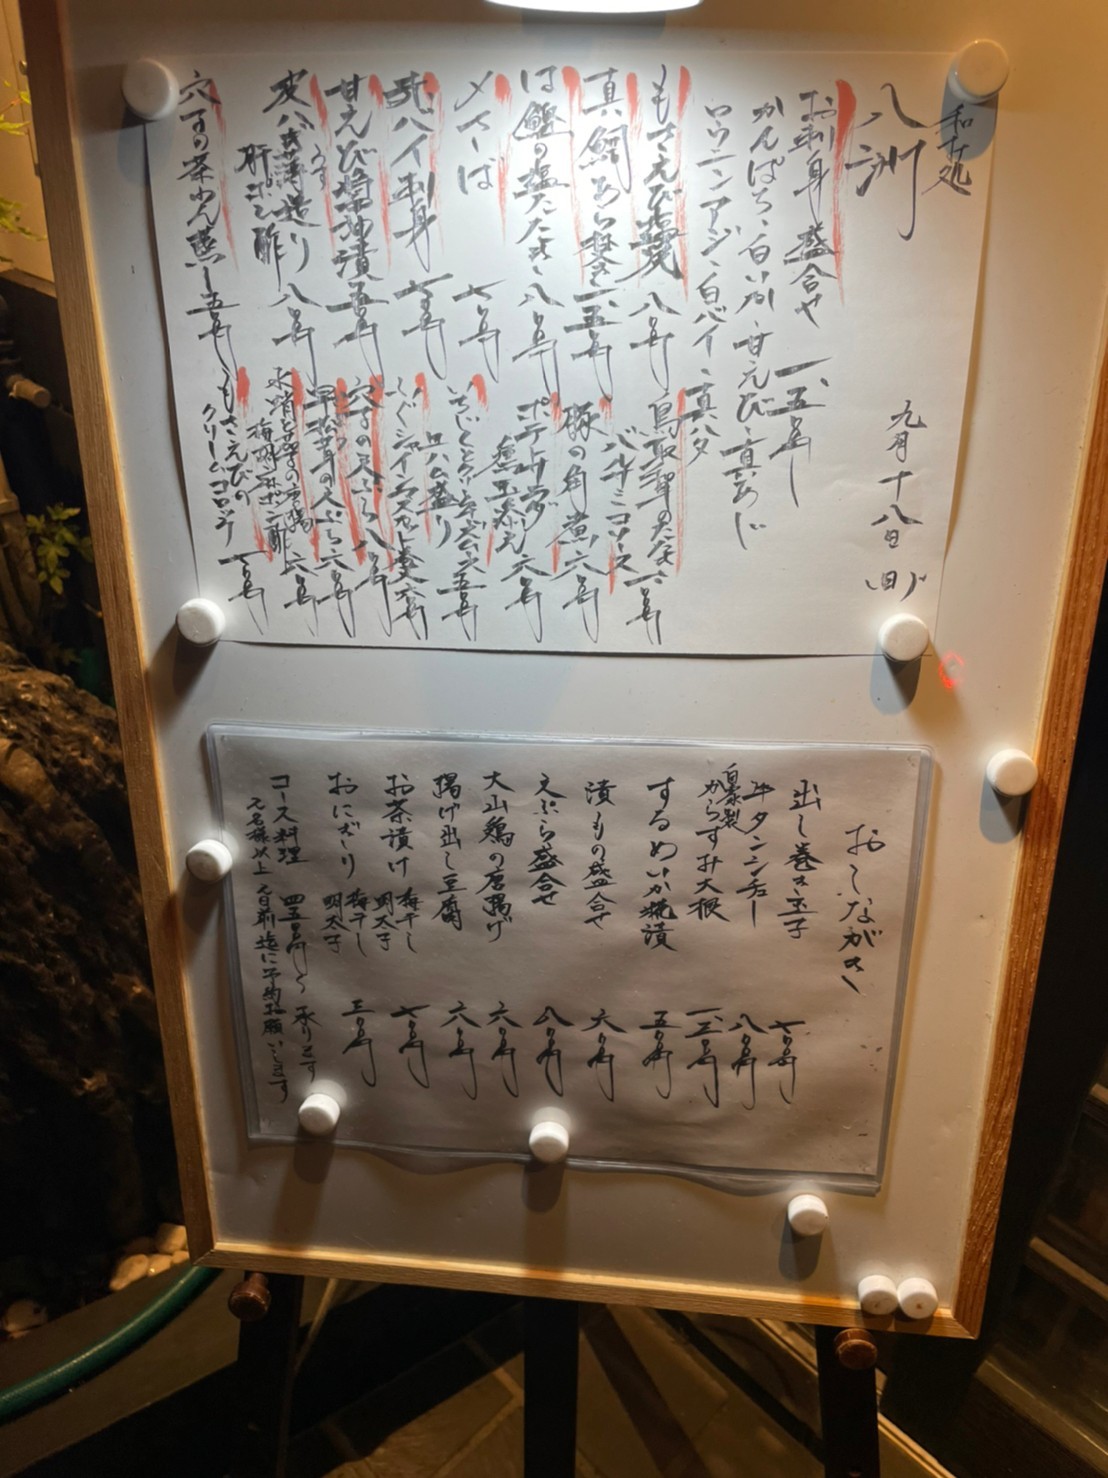 和み処
八洲
九月十八日
お刺身盛合せ 一、五〇〇円〜
かんぱち、白いか、甘えび、真あじ
ロウニンアジ、白バイ、真ハタ
もさえび塩焼 八〇〇円
真鯛あら焚き 一、五〇〇円
は鰹の塩たたき 八〇〇円
〆さば 七〇〇円
白バイ刺身 七〇〇円
甘えび醤油漬 五〇〇円
皮ハギ薄造り
肝ポン酢 八〇〇円
穴子の茶わん蒸し 五〇〇円
バルサミコソース
豚の角煮 六〇〇円
ポテトサラダ
燻玉添え 六〇〇円
いちじくとクリームチーズ
生ハム盛り
穴子の天ぷら 八〇〇円
早松茸の天ぷら 六〇〇円
もさえびの
クリームコロッケ
おしながき
出し巻き玉子 七〇〇円
牛タンシチュー 八〇〇円
自家製
からすみ大根 一、三〇〇円
するめいか麹漬 五〇〇円
漬もの盛合せ 六〇〇円
天ぷら盛合せ 八〇〇円
大山鶏の唐揚げ 六〇〇円
揚げ出し豆腐 六〇〇円
お茶漬け 梅干し 明太子 七〇〇円
おにぎり 梅干し 明太子 三〇〇円
コース料理 四五〇〇円〜 承ります
二名様以上 二日前迄に予約お願いします